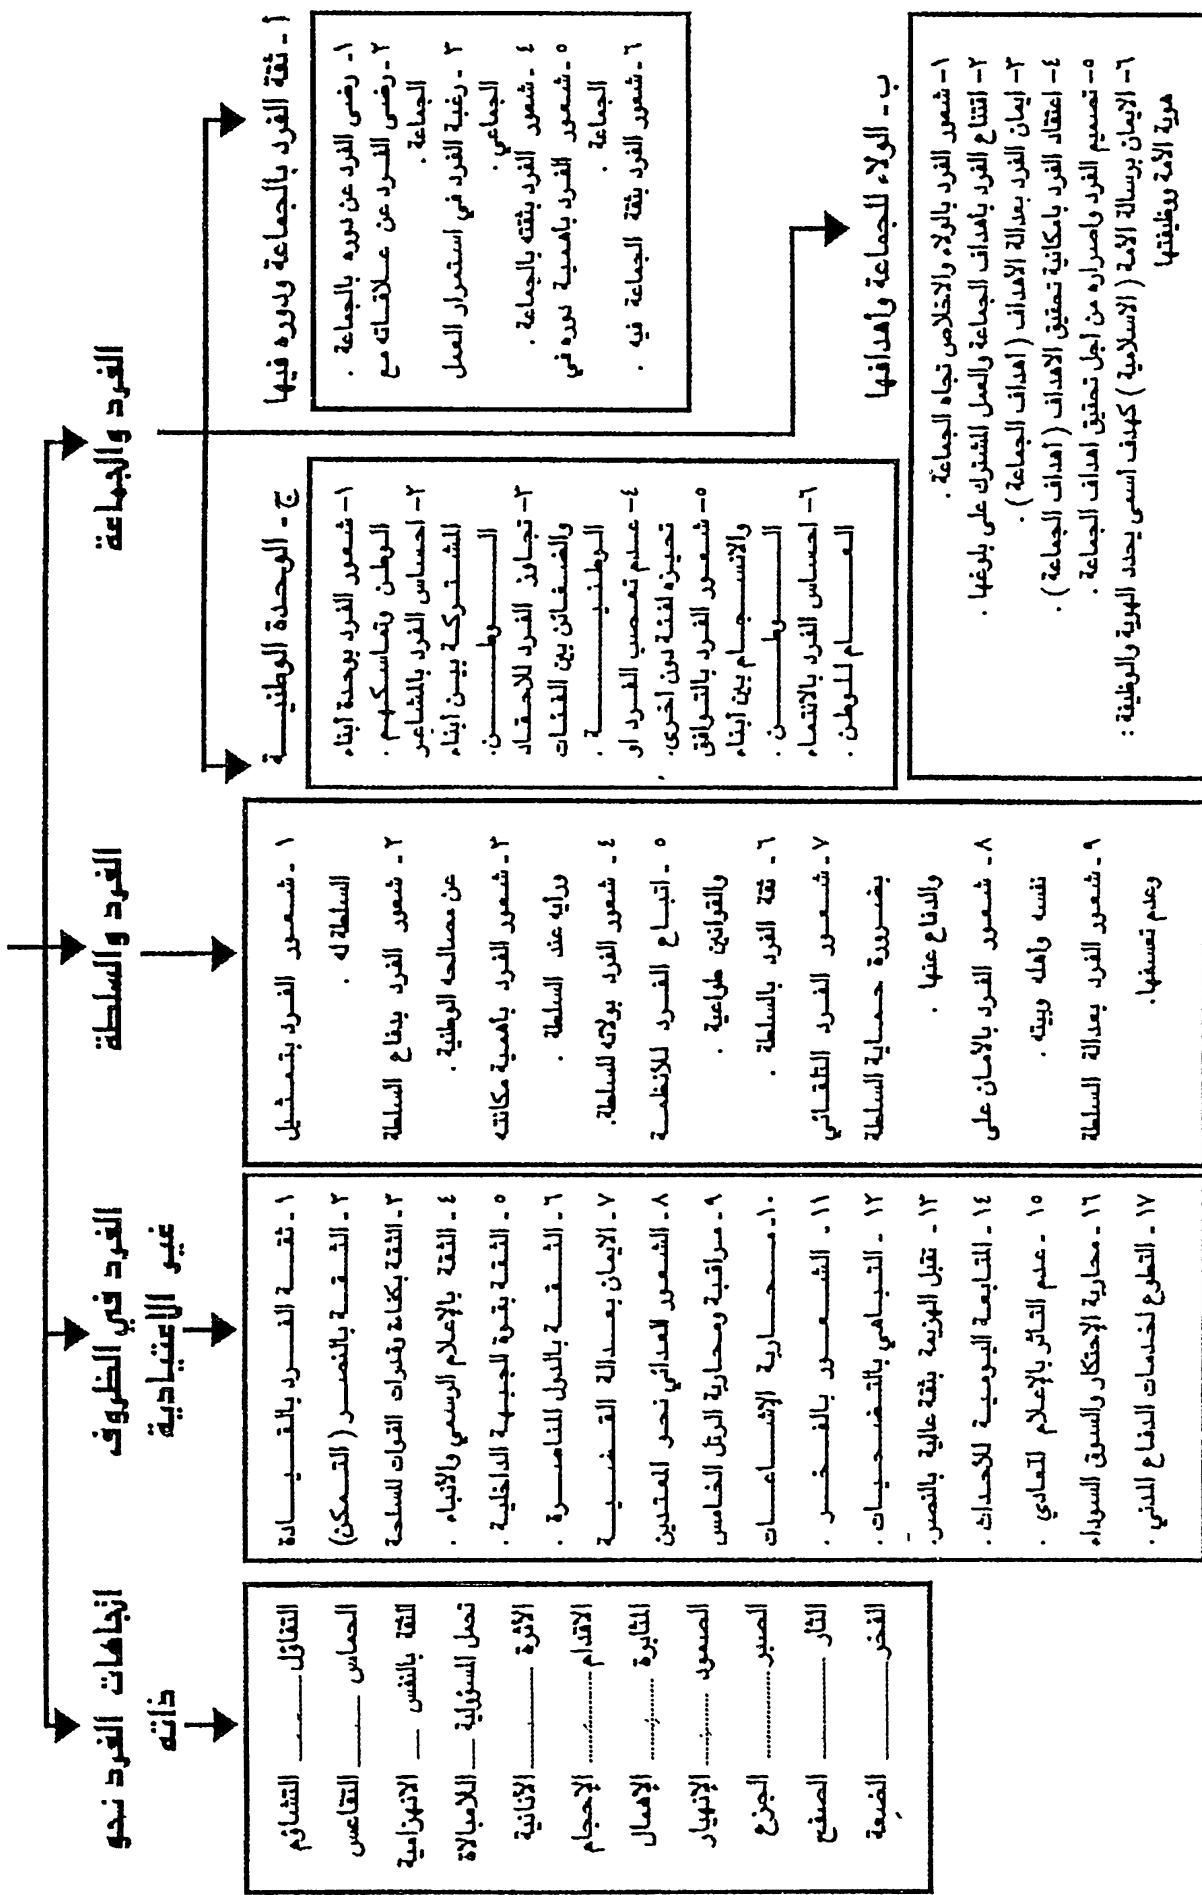 الفرد والجماعة
أ - ثقة الفرد بالجماعة ودوره فيها
١- رضى الفرد عن دوره بالجماعة .
٢- رضى الفرد عن علاقاته مع
الجماعة .
٣ - رغبة الفرد في استمرار العمل
الجماعي .
٤ - شعور الفرد بثقته بالجماعة .
٥ - شعور الفرد باهمية دوره في
الجماعة .
٦ - شعور الفرد بثقة الجماعة فيه .
ب - الولاء للجماعة وأهدافها
١- شعور الفرد بالولاء والاخلاص تجاه الجماعة .
٢- اقتناع الفرد باهداف الجماعة والعمل المشترك على بلوغها .
٣- ايمان الفرد بعدالة الاهداف ( اهداف الجماعة ) .
٤- اعتقاد الفرد بامكانية تحقيق الاهداف ( اهداف الجماعة ) .
٥- تصميم الفرد واصراره من اجل تحقيق اهداف الجماعة .
٦- الايمان برسالة الامة ( الاسلامية ) كهدف اسمى يحدد الهوية والوظيفة :
هوية الأمة ووظيفتها
ج - الوحدة الوطنيـــة
١- شعور الفرد بوحدة أبناء
الوطن وتماسكهم .
٢- احساس الفرد بالمشاعر
المشتركة بين أبناء
الوطن .
٣- تجاوز الفرد للاحقاد
والضغائن بين الفئات
الوطنية .
٤- عدم تعصب الفرد او
تحيزه لفئة دون أخرى .
٥- شعور الفرد بالتوافق
والانسجام بين أبناء
الوطن .
٦- احساس الفرد بالانتماء
العام للوطن .
الفرد والسلطة
١ - شعور الفرد بتمثيل
السلطة له .
٢ - شعور الفرد بدفاع السلطة
عن مصالحه الوطنية .
٣ - شعور الفرد باهمية مكانته
ورأيه عند السلطة .
٤ - شعور الفرد بولائه للسلطة.
٥ - اتباع الفرد للأنظمة
والقوانين طواعية .
٦ - ثقة الفرد بالسلطة .
٧ - شعور الفرد التلقائي
بضرورة حماية السلطة
والدفاع عنها .
٨ - شعور الفرد بالأمان على
نفسه وأهله وبيته .
٩ - شعور الفرد بعدالة السلطة
وعدم تعسفها.
الفرد في الظروف
غير الاعتيادية
١ - ثقة الفرد بالقيادة
٢ - الثقة بالنصر ( التمكن)
٣ - الثقة بكفاءة وقدرات القوات المسلحة
٤ - الثقة بالإعلام الرسمي والأنباء .
٥ - الثقة بقوة الجبهة الداخلية .
٦ - الثقة بالدول المناصرة .
٧ - الايمان بعدالة القضية
٨ - الشعور العدائي نحو المعتدين
٩ - مراقبة ومحاربة الرتل الخامس
١٠- محاربة الإشاعات
١١ - الشعور بالفخر .
١٢ - التباهي بالتضحيات .
١٣ - تقبل الهزيمة بثقة عالية بالنصر.
١٤ - المتابعة اليومية للاحداث .
١٥ - عدم التأثر بالإعلام المعادي .
١٦ - محاربة الإحتكار والسوق السوداء
١٧ - التطوع لخدمات الدفاع المدني .
اتجاهات الفرد نحو
ذاته
التفاؤل ــــــ التشاؤم
الحماس ــــــ التقاعس
الثقة بالنفس ــــ الانهزامية
تحمل المسؤولية ــــ اللامبالاة
الأثرة ــــــ الأنانية
الاقدام .......... الإحجام
المثابرة .......... الإهمال
الصمود .......... الإنهيار
الصبر .......... الجزع
الثار ــــــ الصفح
الفخر ــــــ الضعة